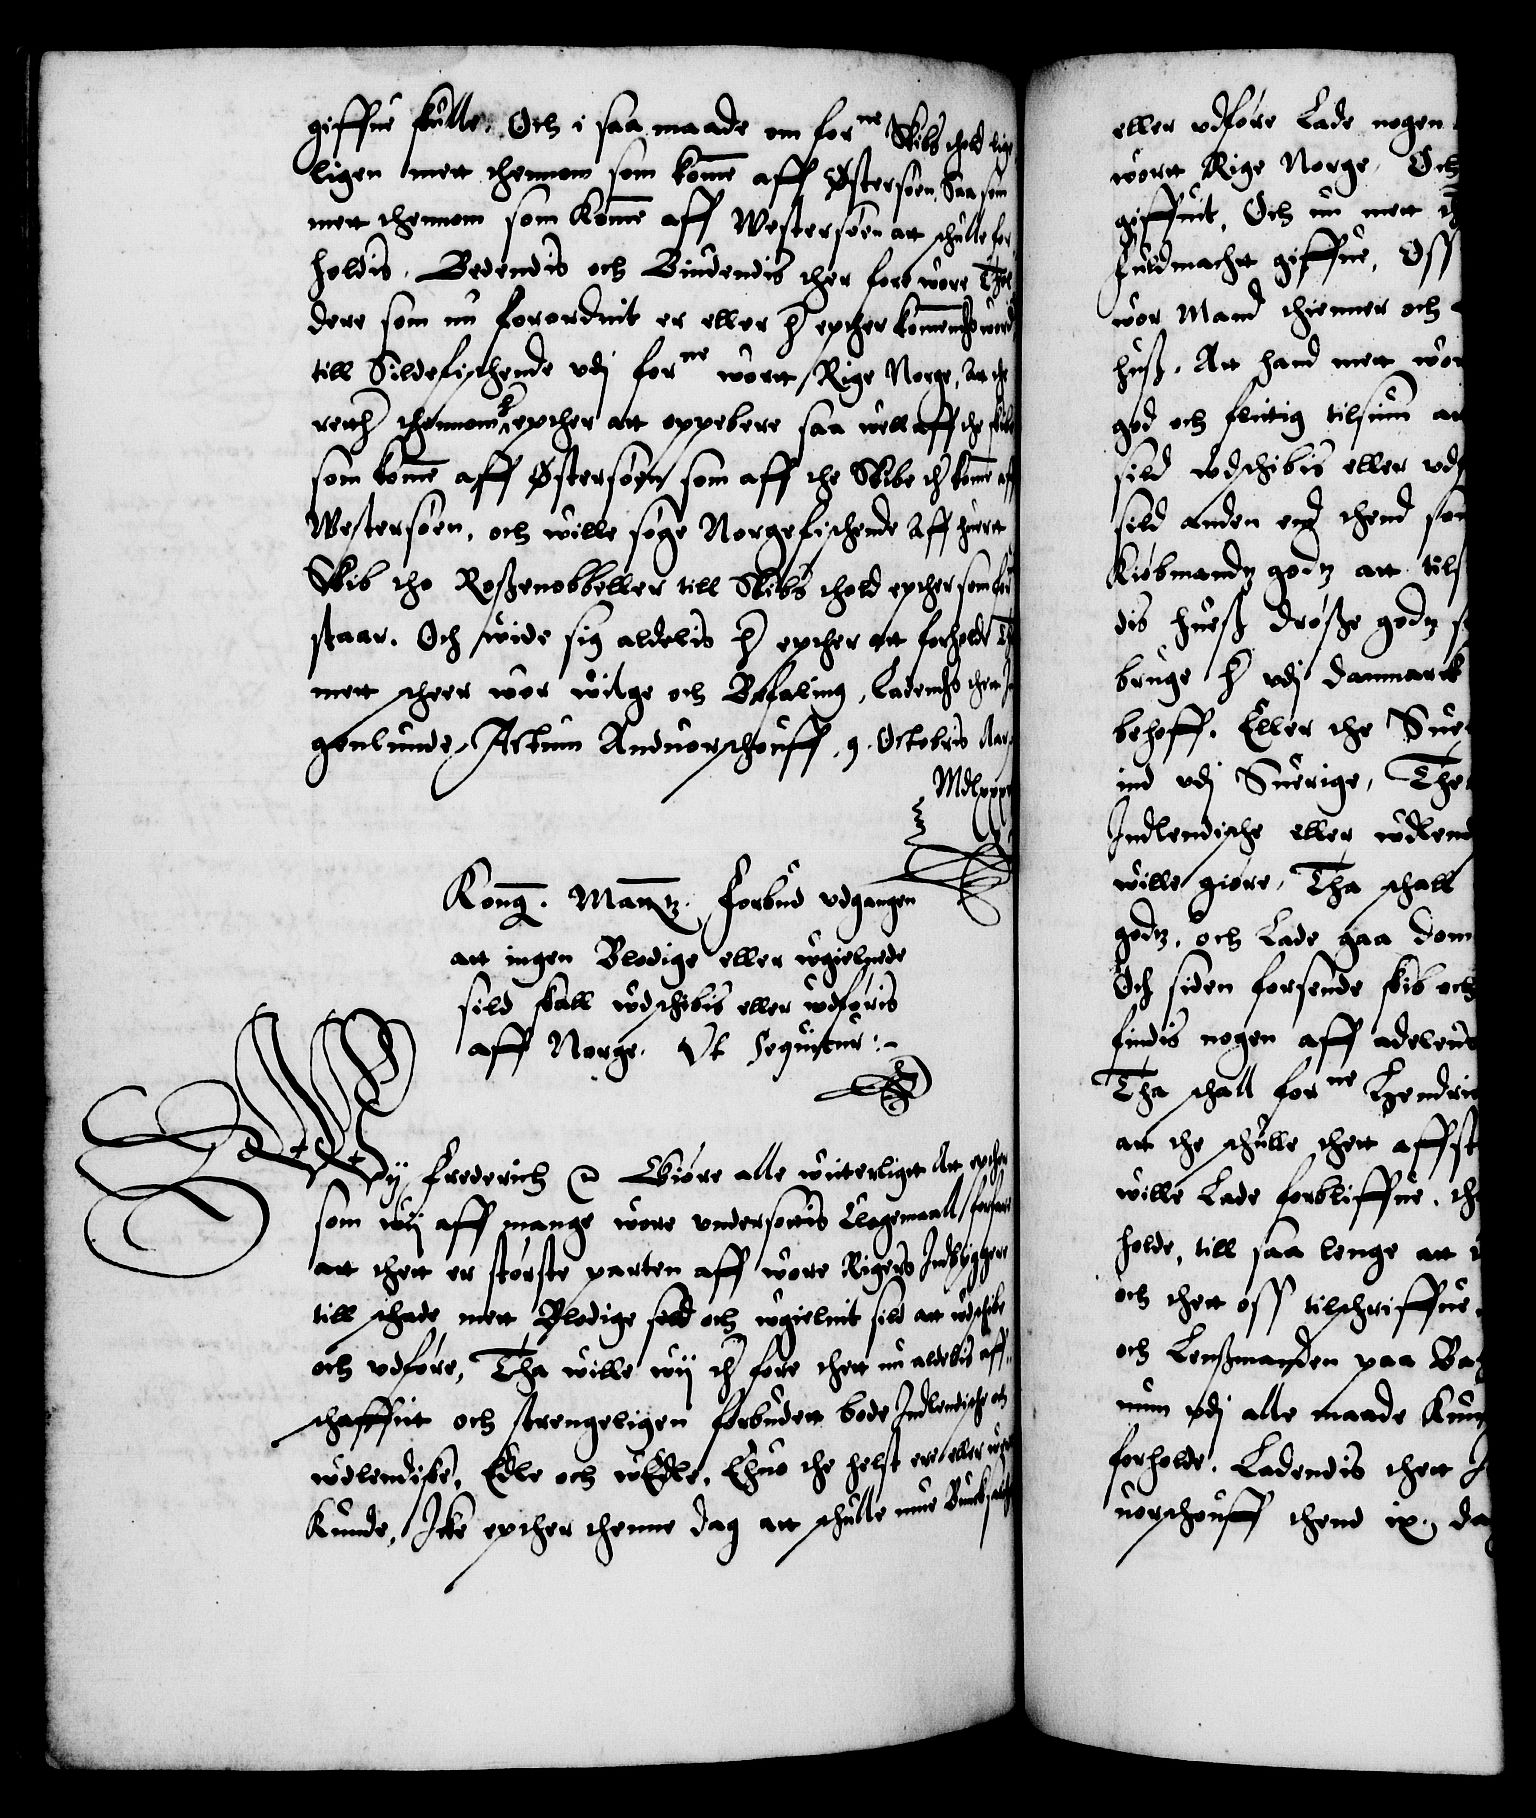 giffue skulle. Och i saa maade om forne Skibs thold lige
ligen mett thennom som komme aff Østersøen. Saa som
mett thennom som komme aff Westersøen att schulle for
holdis. Bedendis och Biudendis ther fore wore Thol
dere som nu forordnit er eller her epther kommendis word
till Sildefischende vdj forne wortt Rige Norge, Att the
retther thennom her epther att oppebere saa well aff the skibe
som komme aff Østersøen som aff the Skibe ther komme aff
Westersøen, och wille søge Norgefischende Aff huertt
Skib tho Roßenobbeller till Skibs thold epther som for
staar. Och wide sig aldelis her epther att forholde Th
mett scheer wor wilge och Befaling, Ladendis thett In
genlunde, Actum Anduorschouff, 9. Octobris Aar
Mdlxxx
Kong. Matz. Forbud vdgangen
att ingen Blodige eller wgielnede
sild skall wdschibis eller wdføris
aff Norge. Vt Sequitur:-
Wij Frederich Giøre alle witterligtt Att epther
som wij aff mange wore vndersotis Clagemaall forfare
att thett er største parten aff wore Rigers Indbyggere
till schade mett Blodige sild och wgielnit sild att wdschibe
och vdføre, Tha wille wij ther fore thett nu aldelis aff
schaffitt och strengeligen forbudett bode Indlendische och
wdlendiske, Edle och wEdle, Ehuo the helst ere eller were
Kunde, Icke epther thenne dag att schulle
eller vdføre Lade nogen
wortt Rige Norge, Och
giffuit, Och nu mett
fuldmacht giffue, Oss
wor Mand thienner och
huß. Att hand mett wor
god och flittig tilsiun
sild wdschibis eller vd
sild anden end thend som
Kiøbmandz godz att tils
dis hueß drøße godz
bruge her vdj Danmarck
behoff. Eller the Sue
ind vdj Suerige, The
Indlendische eller wdlend
wille giøre, Tha schall
godz, och Lade gaa dom
Och siden forsende skib och
findis nogen aff adelens
Tha schall forne Hendri
att the schulle thett affst
wille Lade forbliffue,
holde, till saa lenge att
och thett oss tilschriffue
och Lenßmanden paa Ba
num vdj alle maade Kun
forholde. Ladendis thett
uorschouff thend ix. da